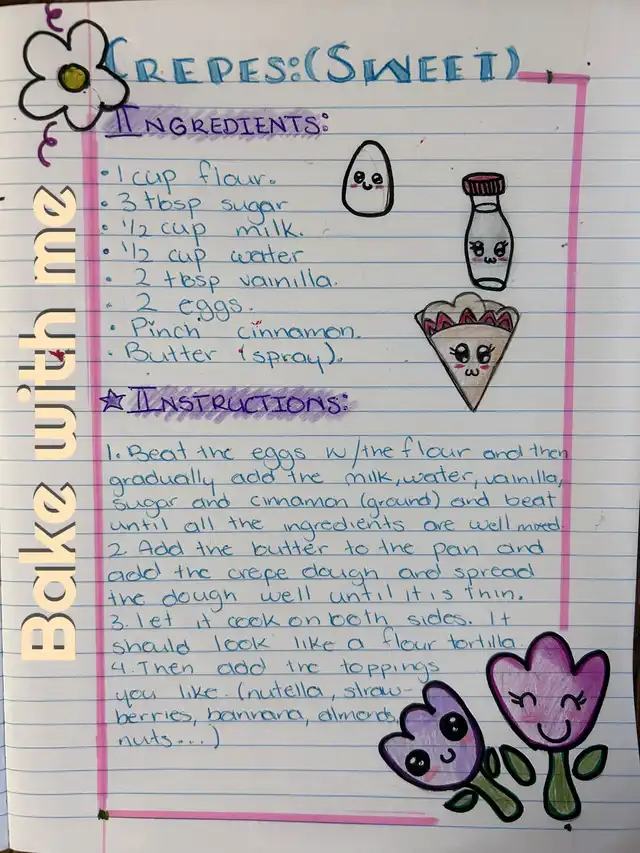 Bake with me
CREPES:(SWEET)
INGREDIENTS:
• 1 cup flour.
• 3 tbsp sugar
• 1/2 cup milk.
• 1/2 cup water
• 2 tbsp vainilla.
• 2 eggs.
• Pinch cinnamon.
• Butter (spray).
☆ INSTRUCTIONS:
1. Beat the eggs w/the flour and then
gradually add the milk, water, vainilla,
sugar and cinnamon (ground) and beat
until all the ingredients are well mixed.
2. Add the butter to the pan and
add the crepe dough and spread
the dough well until it is thin.
3. let it cook on both sides. It
should look like a flour tortilla
4. Then add the toppings
you like. (nutella, straw-
berries, bannana, almonds,
nuts...)